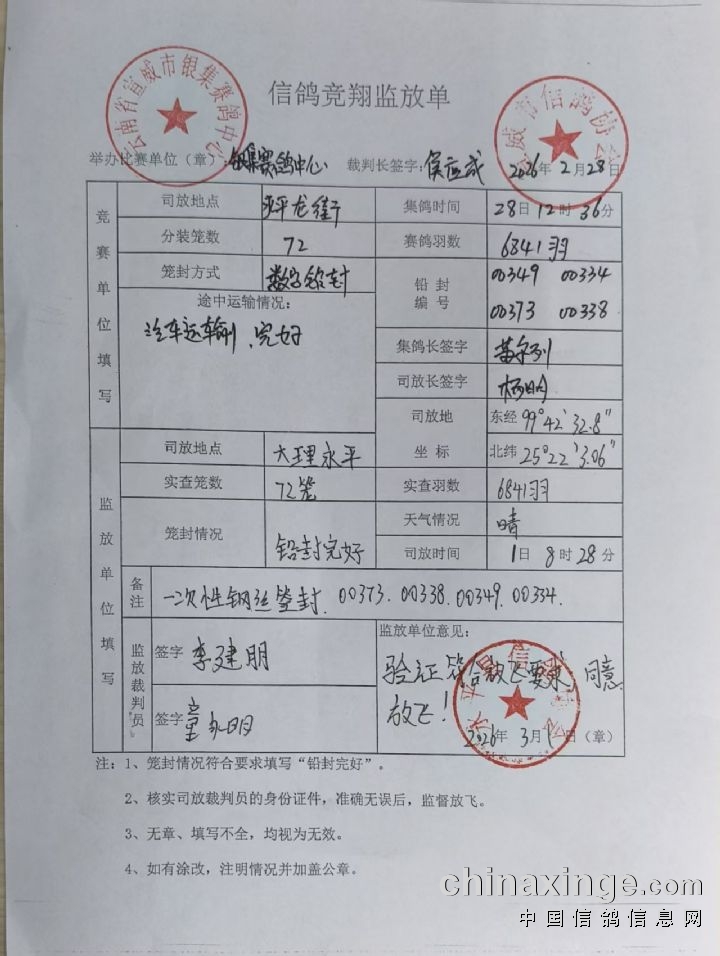 信鸽竞翔监放单
云南省宣威市银集赛鸽中心
威市信鸽协会
举办比赛单位（章）：银集赛鸽中心 裁判长签字： 2026年2月28日
竞赛单位填写
司放地点 永平龙街 集鸽时间 28日12时36分
分装笼数 72 赛鸽羽数 6841羽
笼封方式 数字铅封 铅封编号 00349 00334
00373 00338
途中运输情况：
汽车运输，完好
集鸽长签字
司放长签字
司放地坐标 东经99°42′32.8″
北纬25°22′3.06″
监放单位填写
司放地点 大理永平
实查笼数 72笼 实查羽数 6841羽
笼封情况 铅封完好 天气情况 晴
司放时间 1日8时28分
备注 一次性钢丝签封.00373.00338.00349.00334.
监放裁判员 签字 李建明
签字 童永明
监放单位意见：
验证符合放飞要求，同意
放飞！
2026年3月1日（章）
注：1、笼封情况符合要求填写“铅封完好”。
2、核实司放裁判员的身份证件，准确无误后，监督放飞。
3、无章、填写不全，均视为无效。
4、如有涂改，注明情况并加盖公章。
chinaxinge.com
中国信鸽信息网